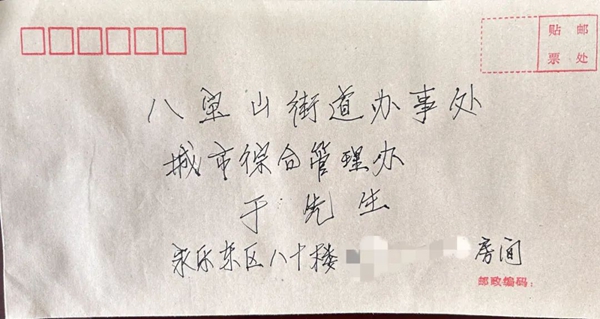 贴 邮
票 处
八宝山街道办事处
城市综合管理办
于先生
永乐东区八十楼 房间
邮政编码：